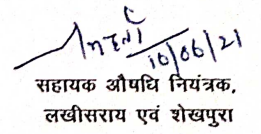 10/06/21
सहायक औषधि नियंत्रक,
लखीसराय एवं शेखपुरा